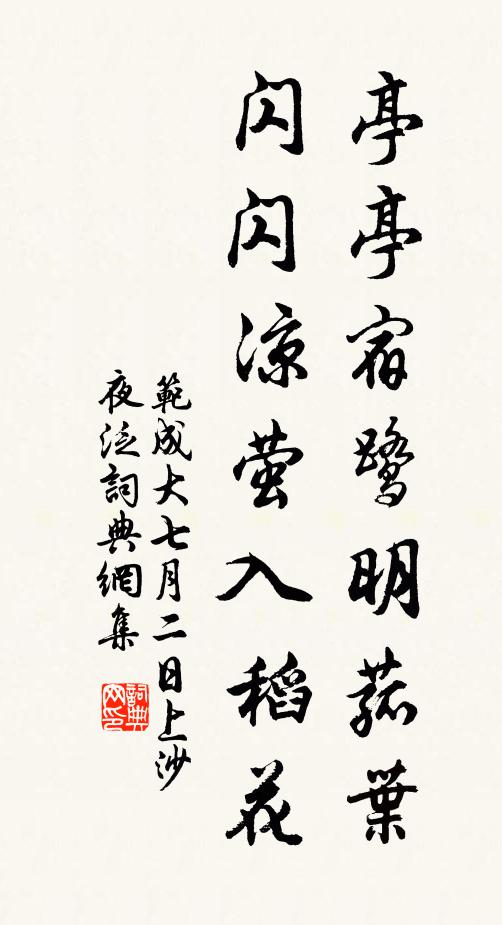 亭亭宿鹭明菰葉
闪闪凉萤入稻花
範成大七月二日上沙
夜泛詞典網集
詞典
网印